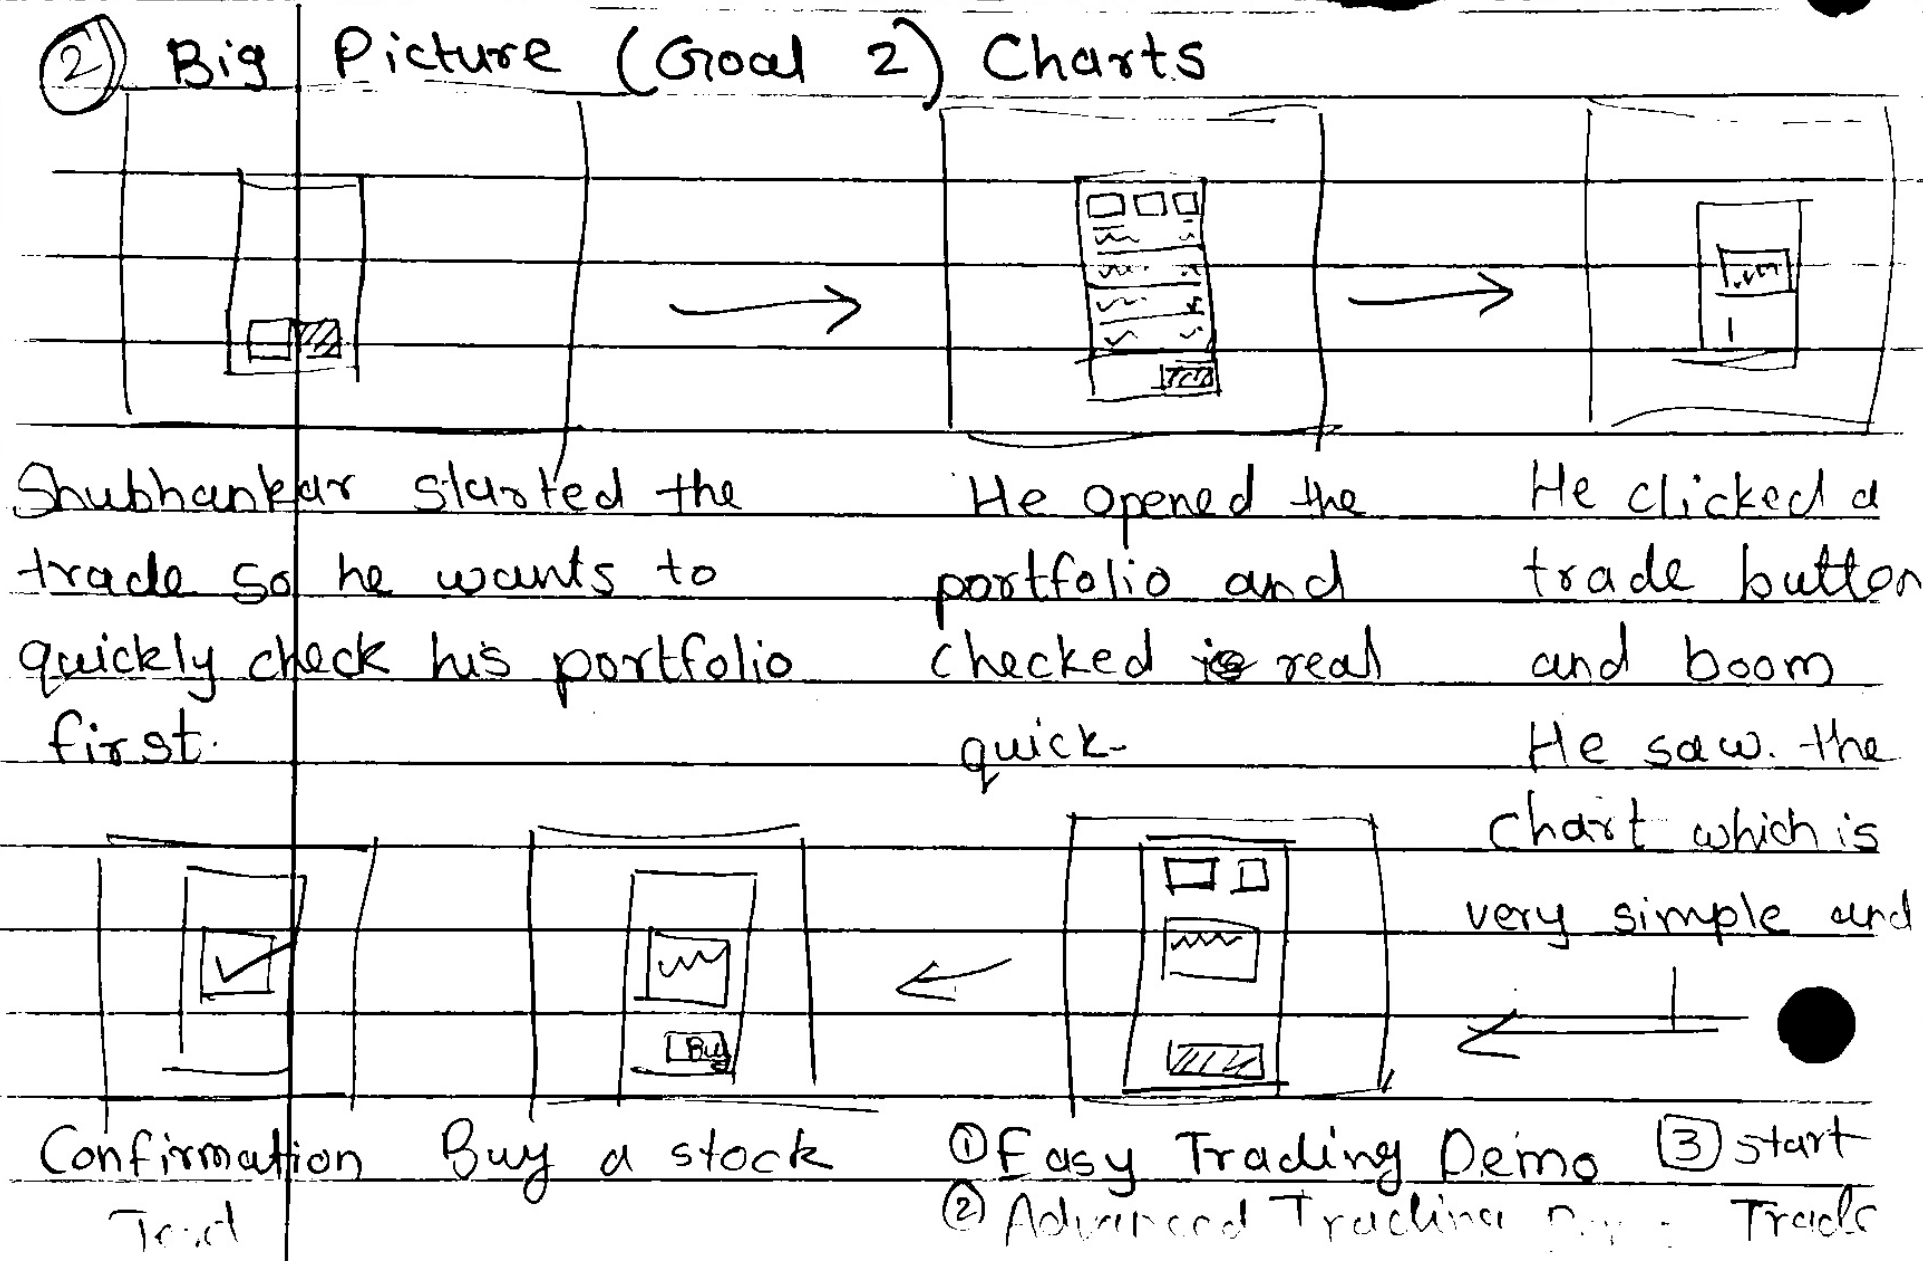 ② Big Picture (Goal 2) Charts
Shubhankar started the
trade so he wants to
quickly check his portfolio
first.
He opened the
portfolio and
checked is real
quick
He clicked a
trade button
and boom
He saw. the
chart which is
very simple and
Confirmation
Buy
Buy a stock
① Easy Trading Demo
② Advanced Trading
3 start
Trade